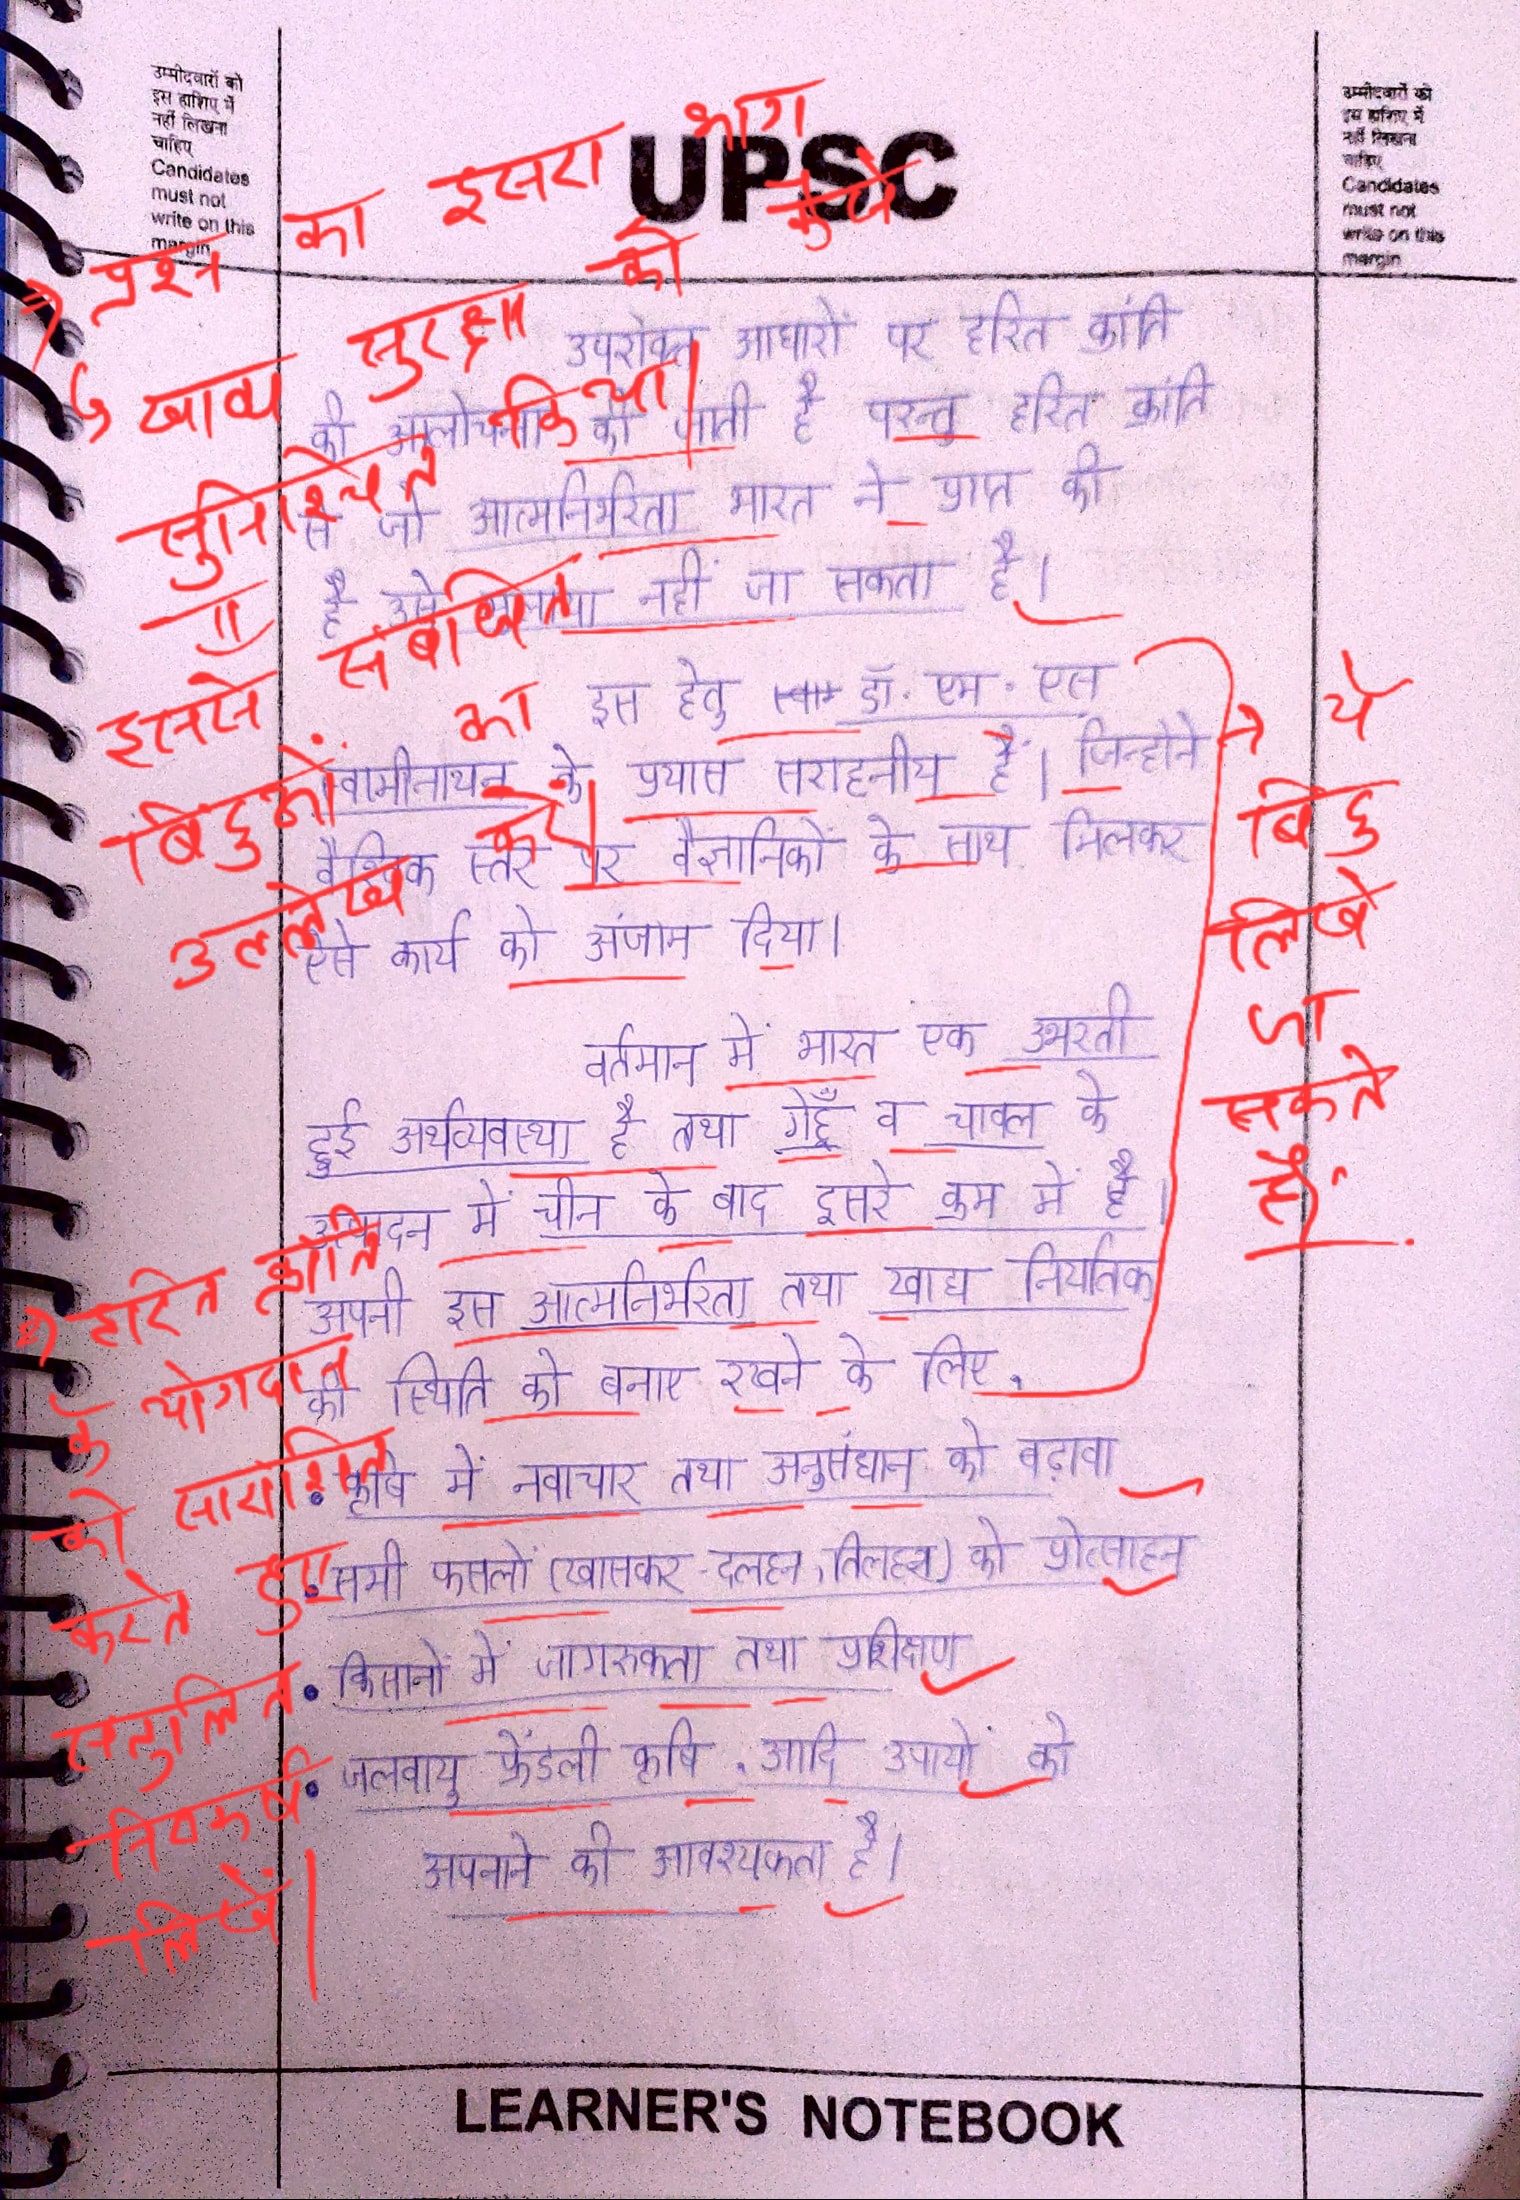 उम्मीदवारों को
इस हाशिए में
नहीं लिखना
चाहिए
Candidates
must not
write on this
margin
UPSC
उम्मीदवारों को
इस हाशिए में
नहीं लिखना
चाहिए
Candidates
must not
write on this
margin
⇒ प्रश्न का दूसरा भाग
↳ खाद्य सुरक्षा को कैसे
सुनिश्चित किया।
इससे संबंधित
बिंदुओं का
उल्लेख करें।
उपरोक्त आधारों पर हरित क्रांति
की आलोचना की जाती है परन्तु हरित क्रांति
से जो आत्मनिर्भरता भारत ने प्राप्त की
है उसे नहीं जा सकता है।
इस हेतु डॉ. एम. एस
स्वामीनाथन के प्रयास सराहनीय हैं। जिन्होंने
वैश्विक स्तर पर वैज्ञानिकों के साथ मिलकर
ऐसे कार्य को अंजाम दिया।
वर्तमान में भारत एक उभरती
हुई अर्थव्यवस्था है तथा गेहूँ व चावल के
उत्पादन में चीन के बाद दूसरे क्रम में है।
अपनी इस आत्मनिर्भरता तथा खाद्य निर्यातक
की स्थिति को बनाए रखने के लिए,
• कृषि में नवाचार तथा अनुसंधान को बढ़ावा
• सभी फसलों (खासकर-दलहन, तिलहन) को प्रोत्साहन
• किसानों में जागरुकता तथा प्रशिक्षण
• जलवायु फ्रेंडली कृषि, आदि उपायों को
अपनाने की आवश्यकता है।
→ ये
बिंदु
लिखे
जा
सकते
हैं।
⇒ हरित क्रांति
के योगदान
को सारांशित
करते हुए
सन्तुलित
निष्कर्ष
लिखें।
LEARNER'S NOTEBOOK